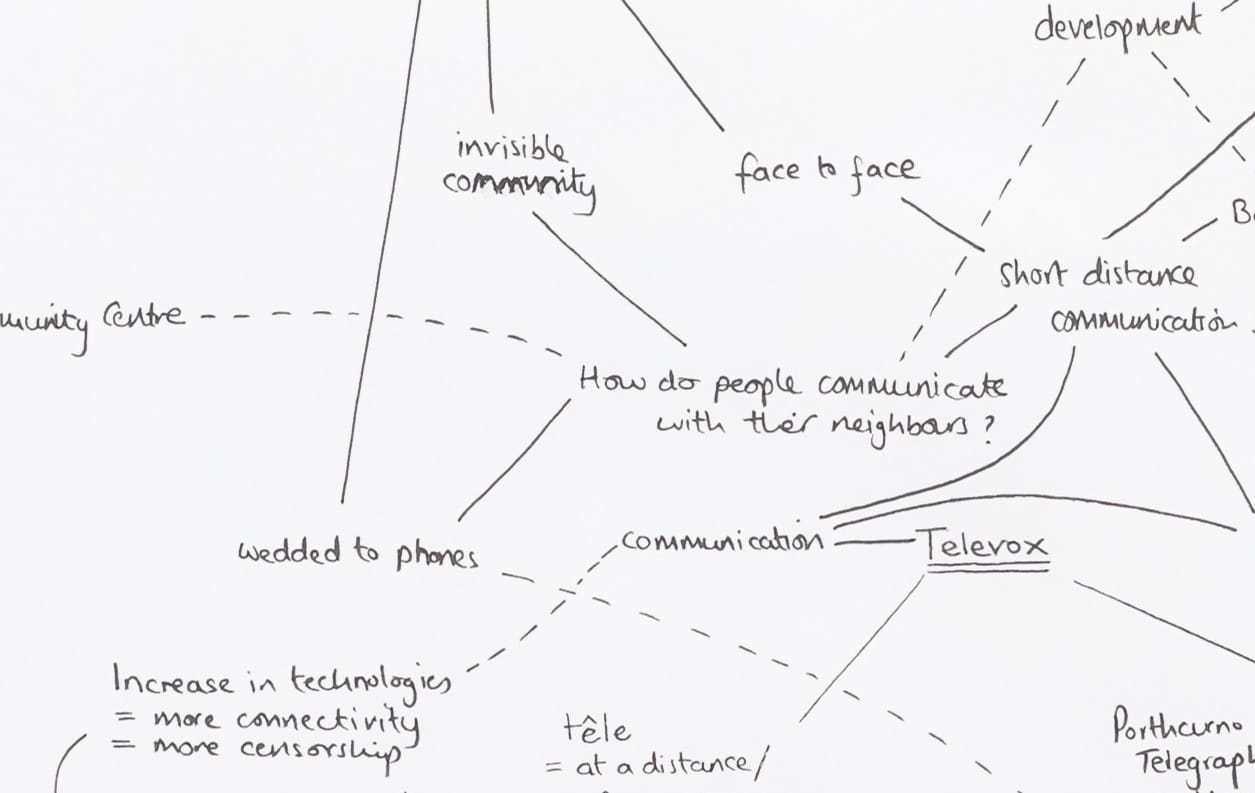 development
invisible
community
face to face
Short distance
communication
Centre
How do people communicate
with their neighbours?
wedded to phones
communication
Televox
Increase in technologies
= more connectivity
= more censorship
têle
= at a distance/
Porthcurno